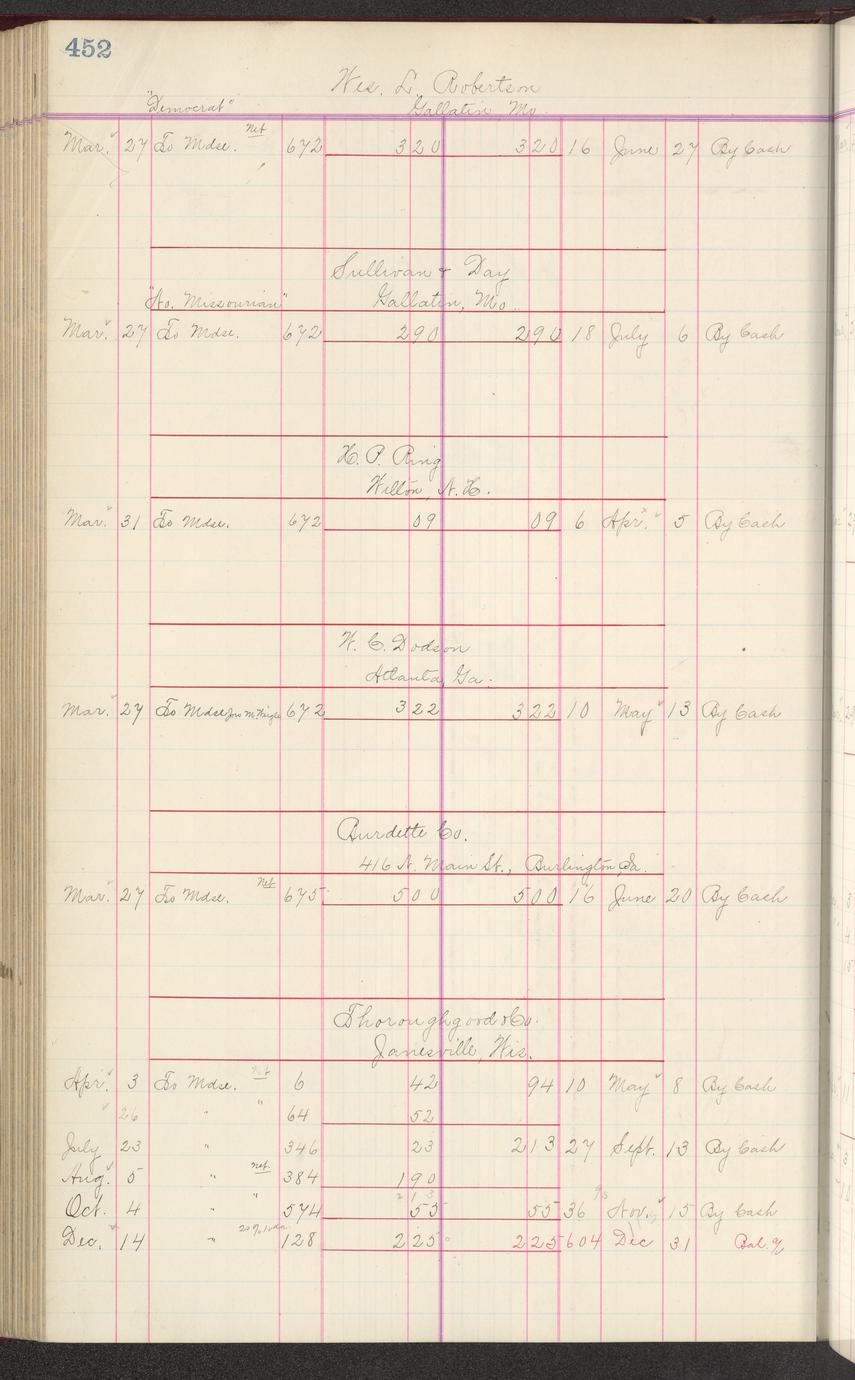 452
Wes. L. Robertson
"Democrat" Gallatin Mo.
Mar. 27 To Mdse. Net 672 320 320 16 June 27 By Cash
Sullivan & Day
"No. Missourian" Gallatin, Mo.
Mar. 27 To Mdse. 672 290 290 18 July 6 By Cash
H. P. Ring
Wilton, N. H.
Mar. 31 To Mdse. 672 09 09 6 Apr. 5 By Cash
W. C. Dodson
Atlanta, Ga.
Mar. 27 To Mdse 672 322 322 10 May 13 By Cash
Burdette Co.
416 N. Main St., Burlington, Ia.
Mar. 27 To Mdse. Net 675 500 500 16 June 20 By Cash
Thoroughgood & Co.
Janesville, Wis.
Apr. 3 To Mdse. Net 6 42 94 10 May 8 By Cash
26 " " 64 52
July 23 " 346 23 213 27 Sept. 13 By Cash
Aug. 5 " net. 384 190
213
Oct. 4 " " 574 55 55 36 Nov. 15 By Cash
Dec. 14 " 128 225 225 604 Dec 31 Bal. %